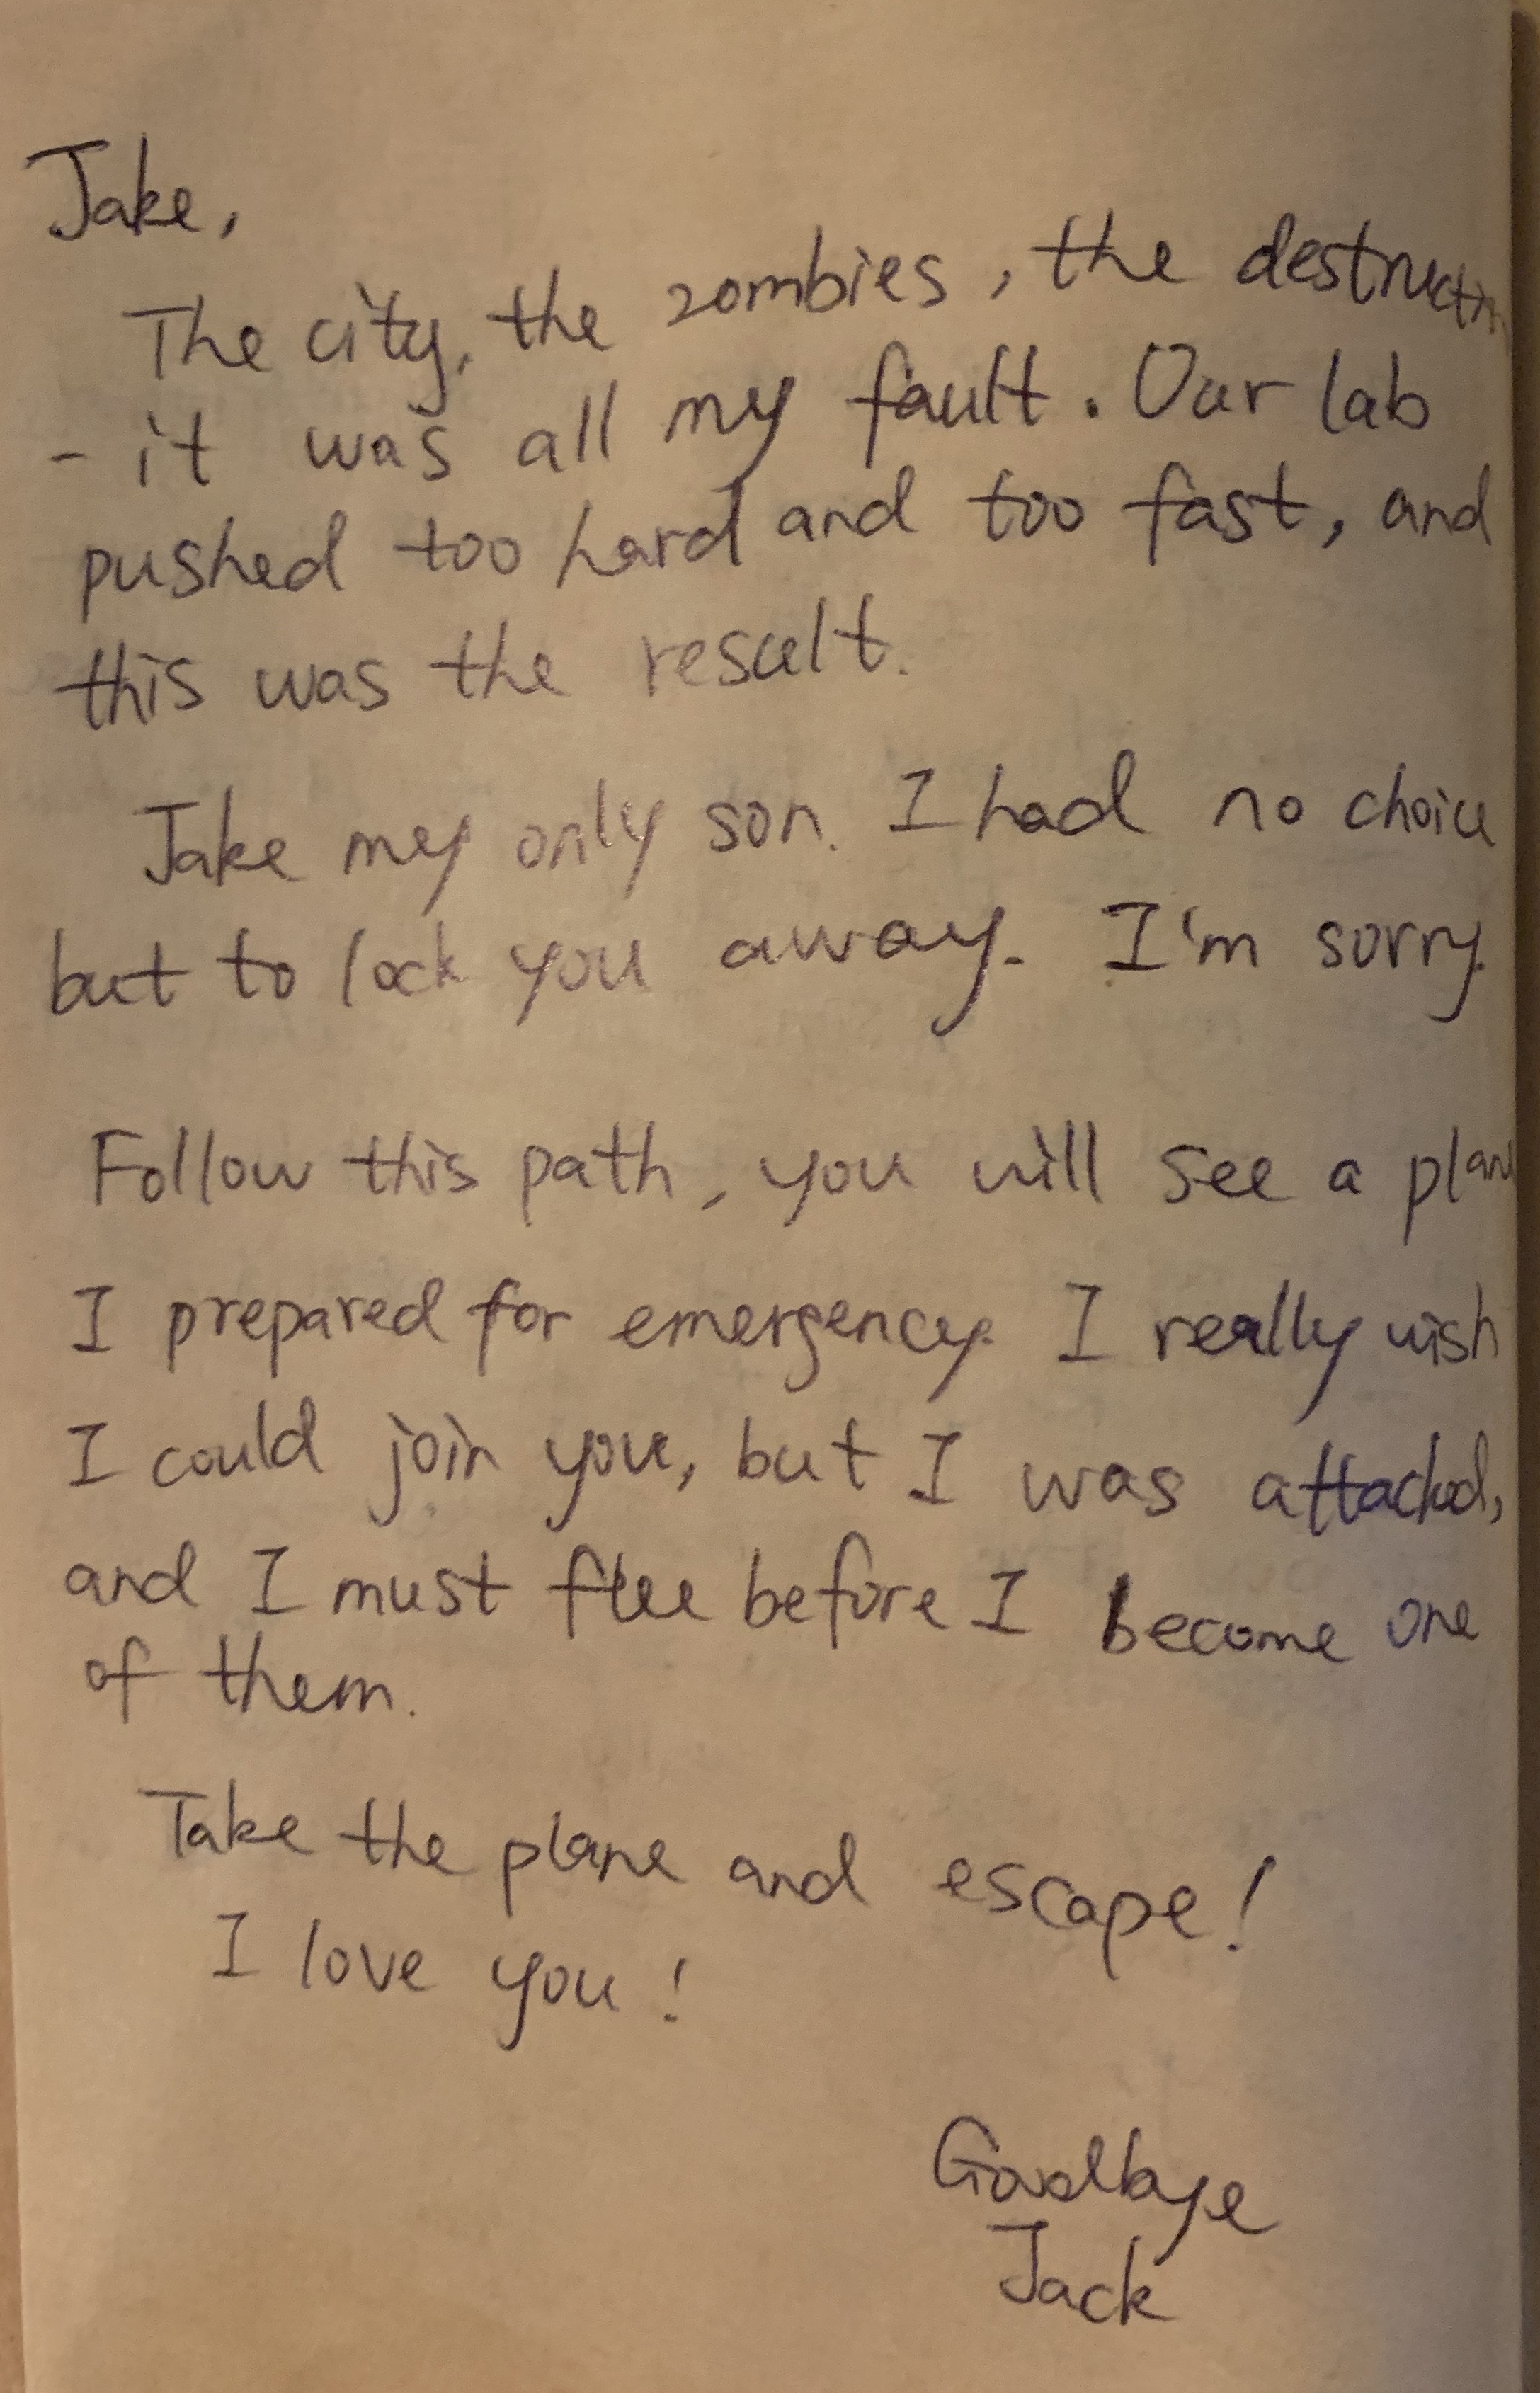 Jake,
The city, the zombies, the destruction
- it was all my fault. Our lab
pushed too hard and too fast, and
this was the result.
Jake my only son. I had no choice
but to lock you away. I'm sorry.
Follow this path, you will see a plane
I prepared for emergency. I really wish
I could join you, but I was attacked,
and I must flee before I become one
of them.
Take the plane and escape!
I love you!
Goodbye
Jack